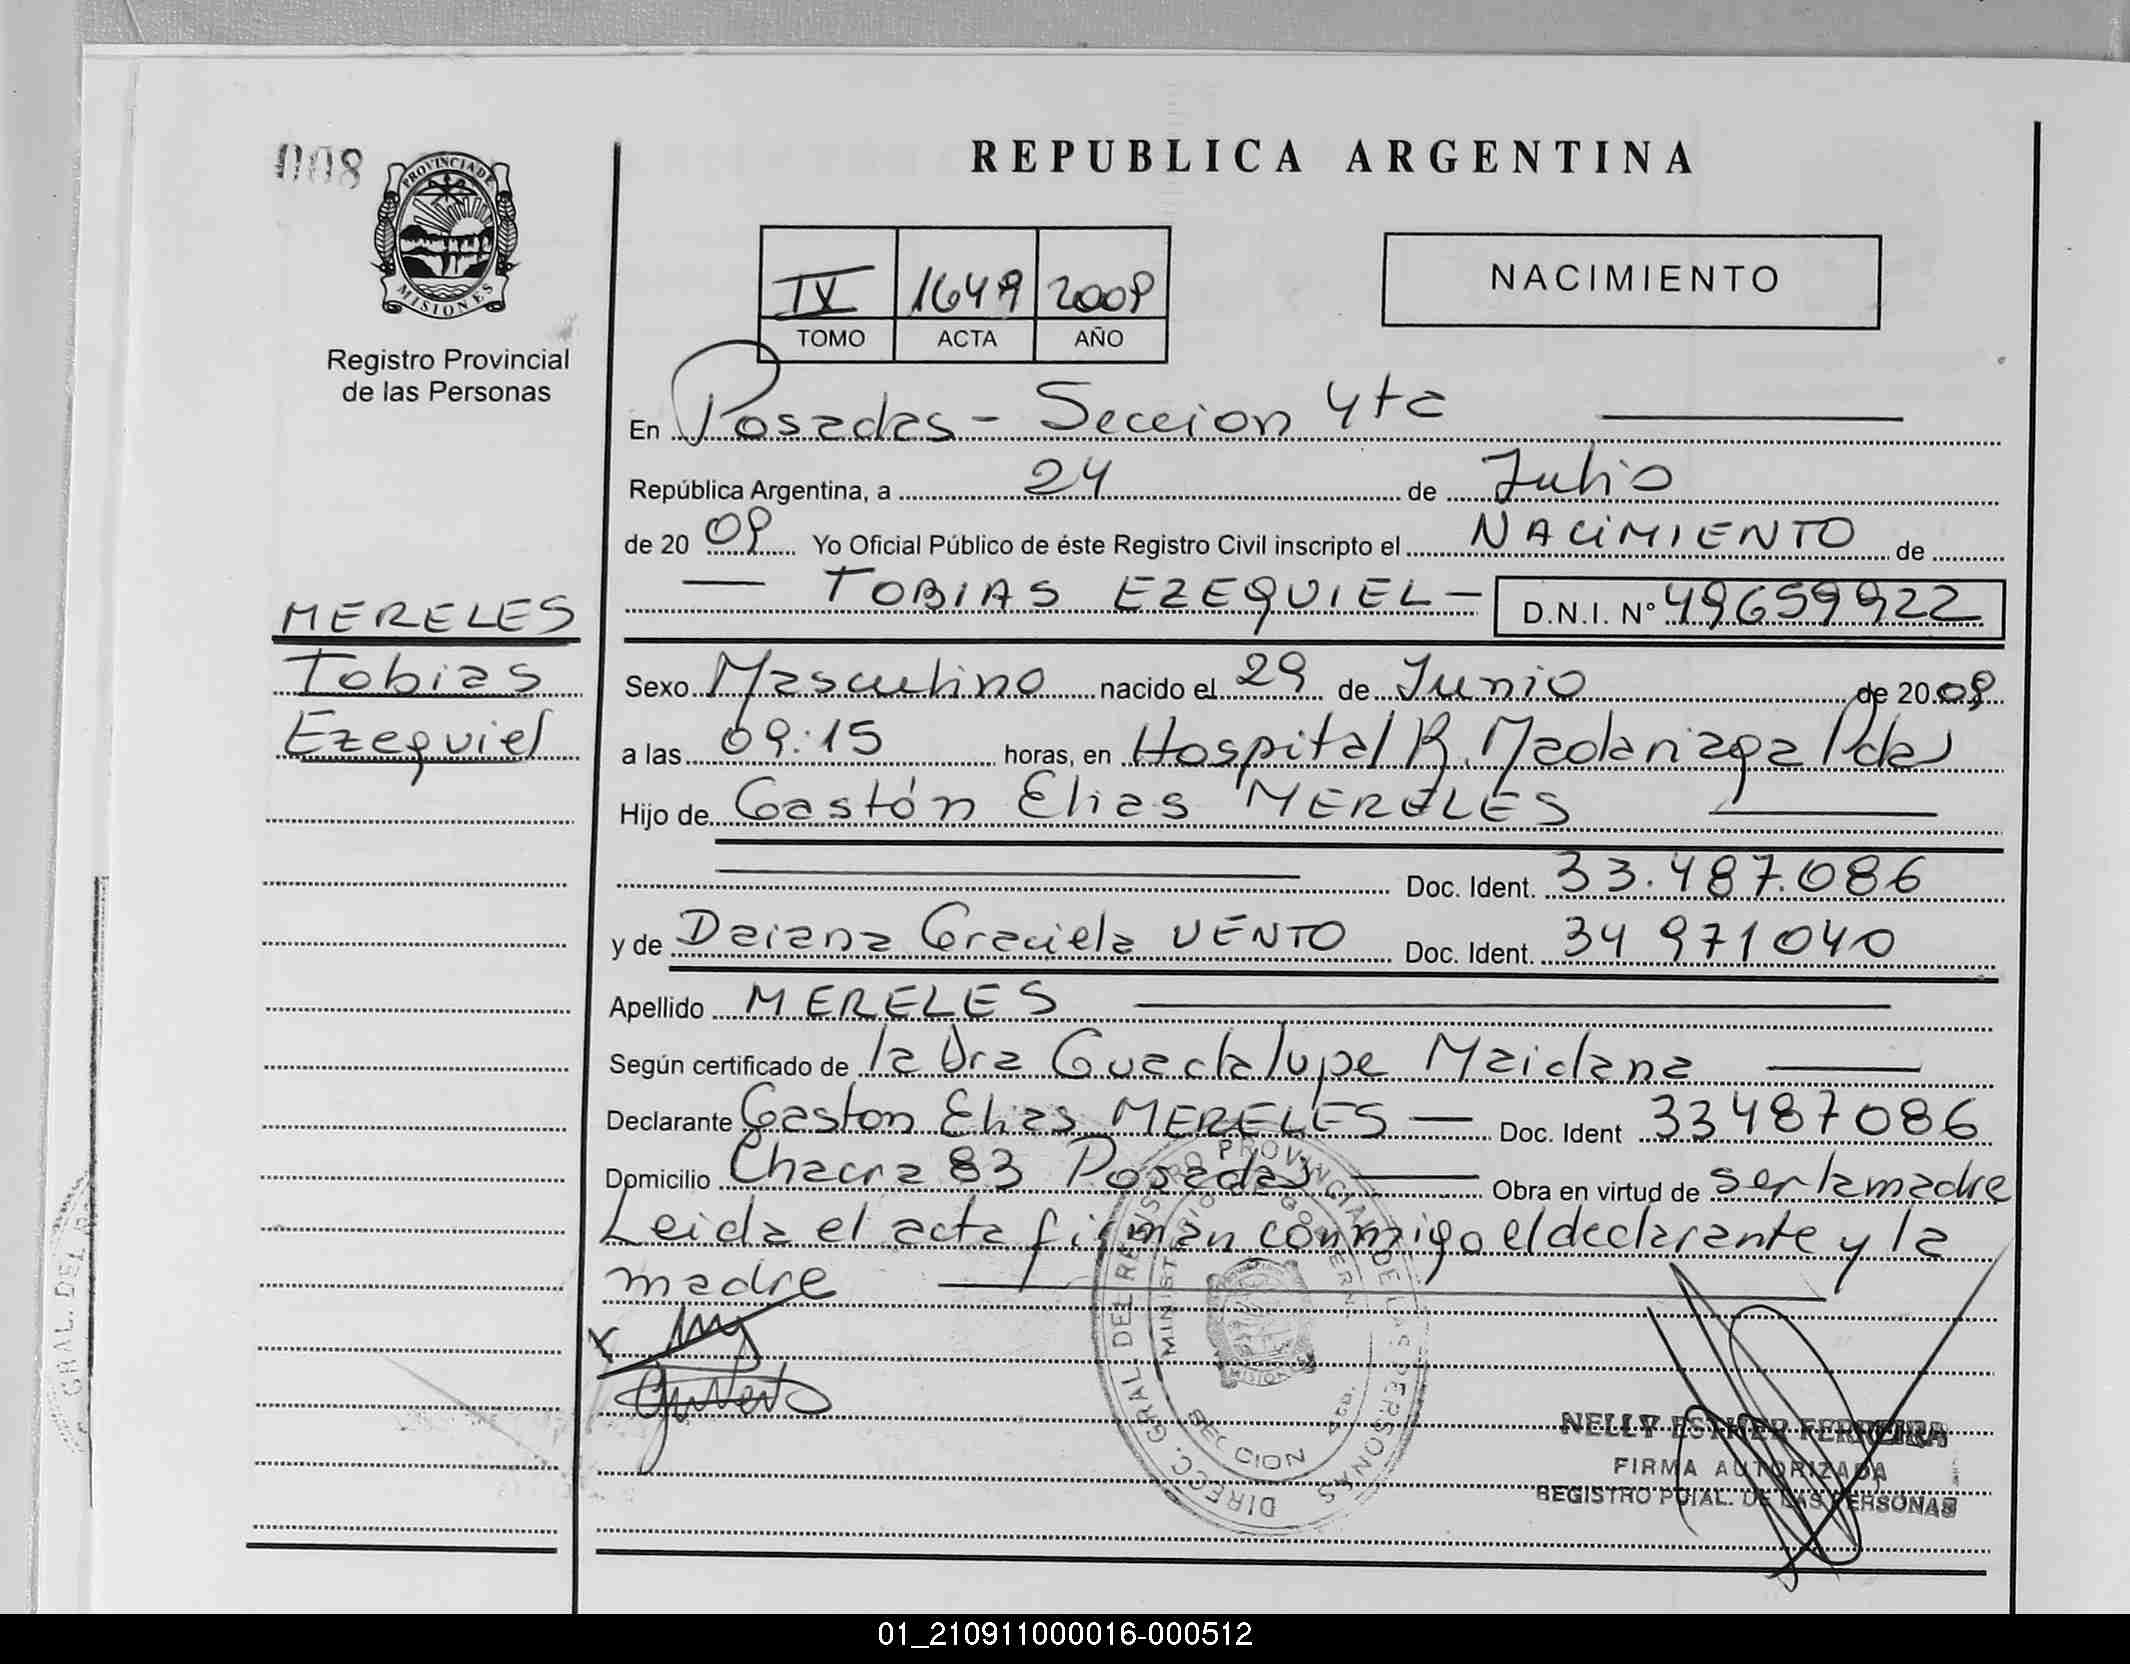 008
PROVINCIA DE
MISIONES
Registro Provincial
de las Personas
REPUBLICA ARGENTINA
IV 1649 2009
TOMO ACTA AÑO
NACIMIENTO
En Posadas - Seccion 4ta
República Argentina, a 24 de Julio
de 20 09 Yo Oficial Público de éste Registro Civil inscripto el NACIMIENTO de
TOBIAS EZEQUIEL - D.N.I. Nº 49659922
MERELES
Tobias
Ezequiel
Sexo Masculino nacido el 29 de Junio de 20 09
a las 09:15 horas, en Hospital R. Madariaga Pdas
Hijo de Gastón Elias MERELES
Doc. Ident. 33.487.086
y de Daiana Graciela VENTO Doc. Ident. 34 971040
Apellido MERELES
Según certificado de la Dra Guadalupe Maidana
Declarante Gaston Elias MERELES — Doc. Ident 33487086
Domicilio Chacra 83 Posadas Obra en virtud de ser la madre
Leida el acta firman conmigo el declarante y la
madre
DIRECC. GRAL DEL REGISTRO PROVINCIAL DE LAS PERSONAS
MINISTERIO DE GOBIERNO
MISIONES
SECCION 4ta.
NELLY ESTHER FERREIRA
FIRMA AUTORIZADA
REGISTRO PCIAL. DE LAS PERSONAS
GRAL. DEL
01_210911000016-000512